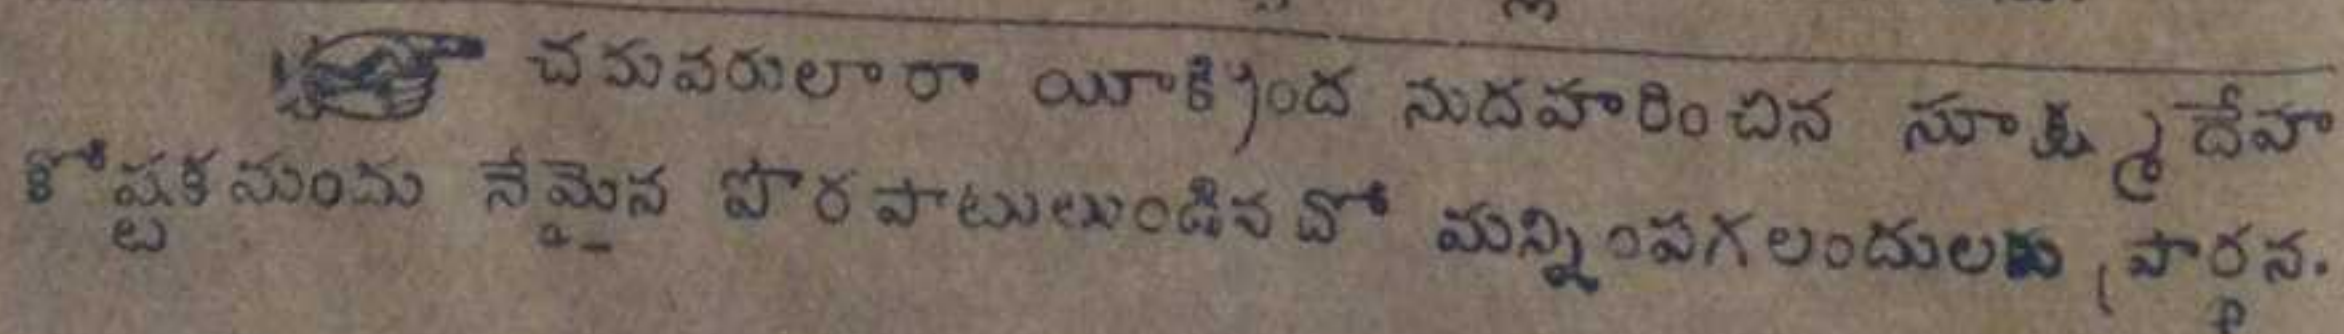 ☞ చదువరులారా యీక్రింద నుదహరించిన సూక్ష్మదేహ
కోష్టకమందు నేమైన పొరపాటులుండినచో మన్నింపగలందులకు ప్రార్థన.